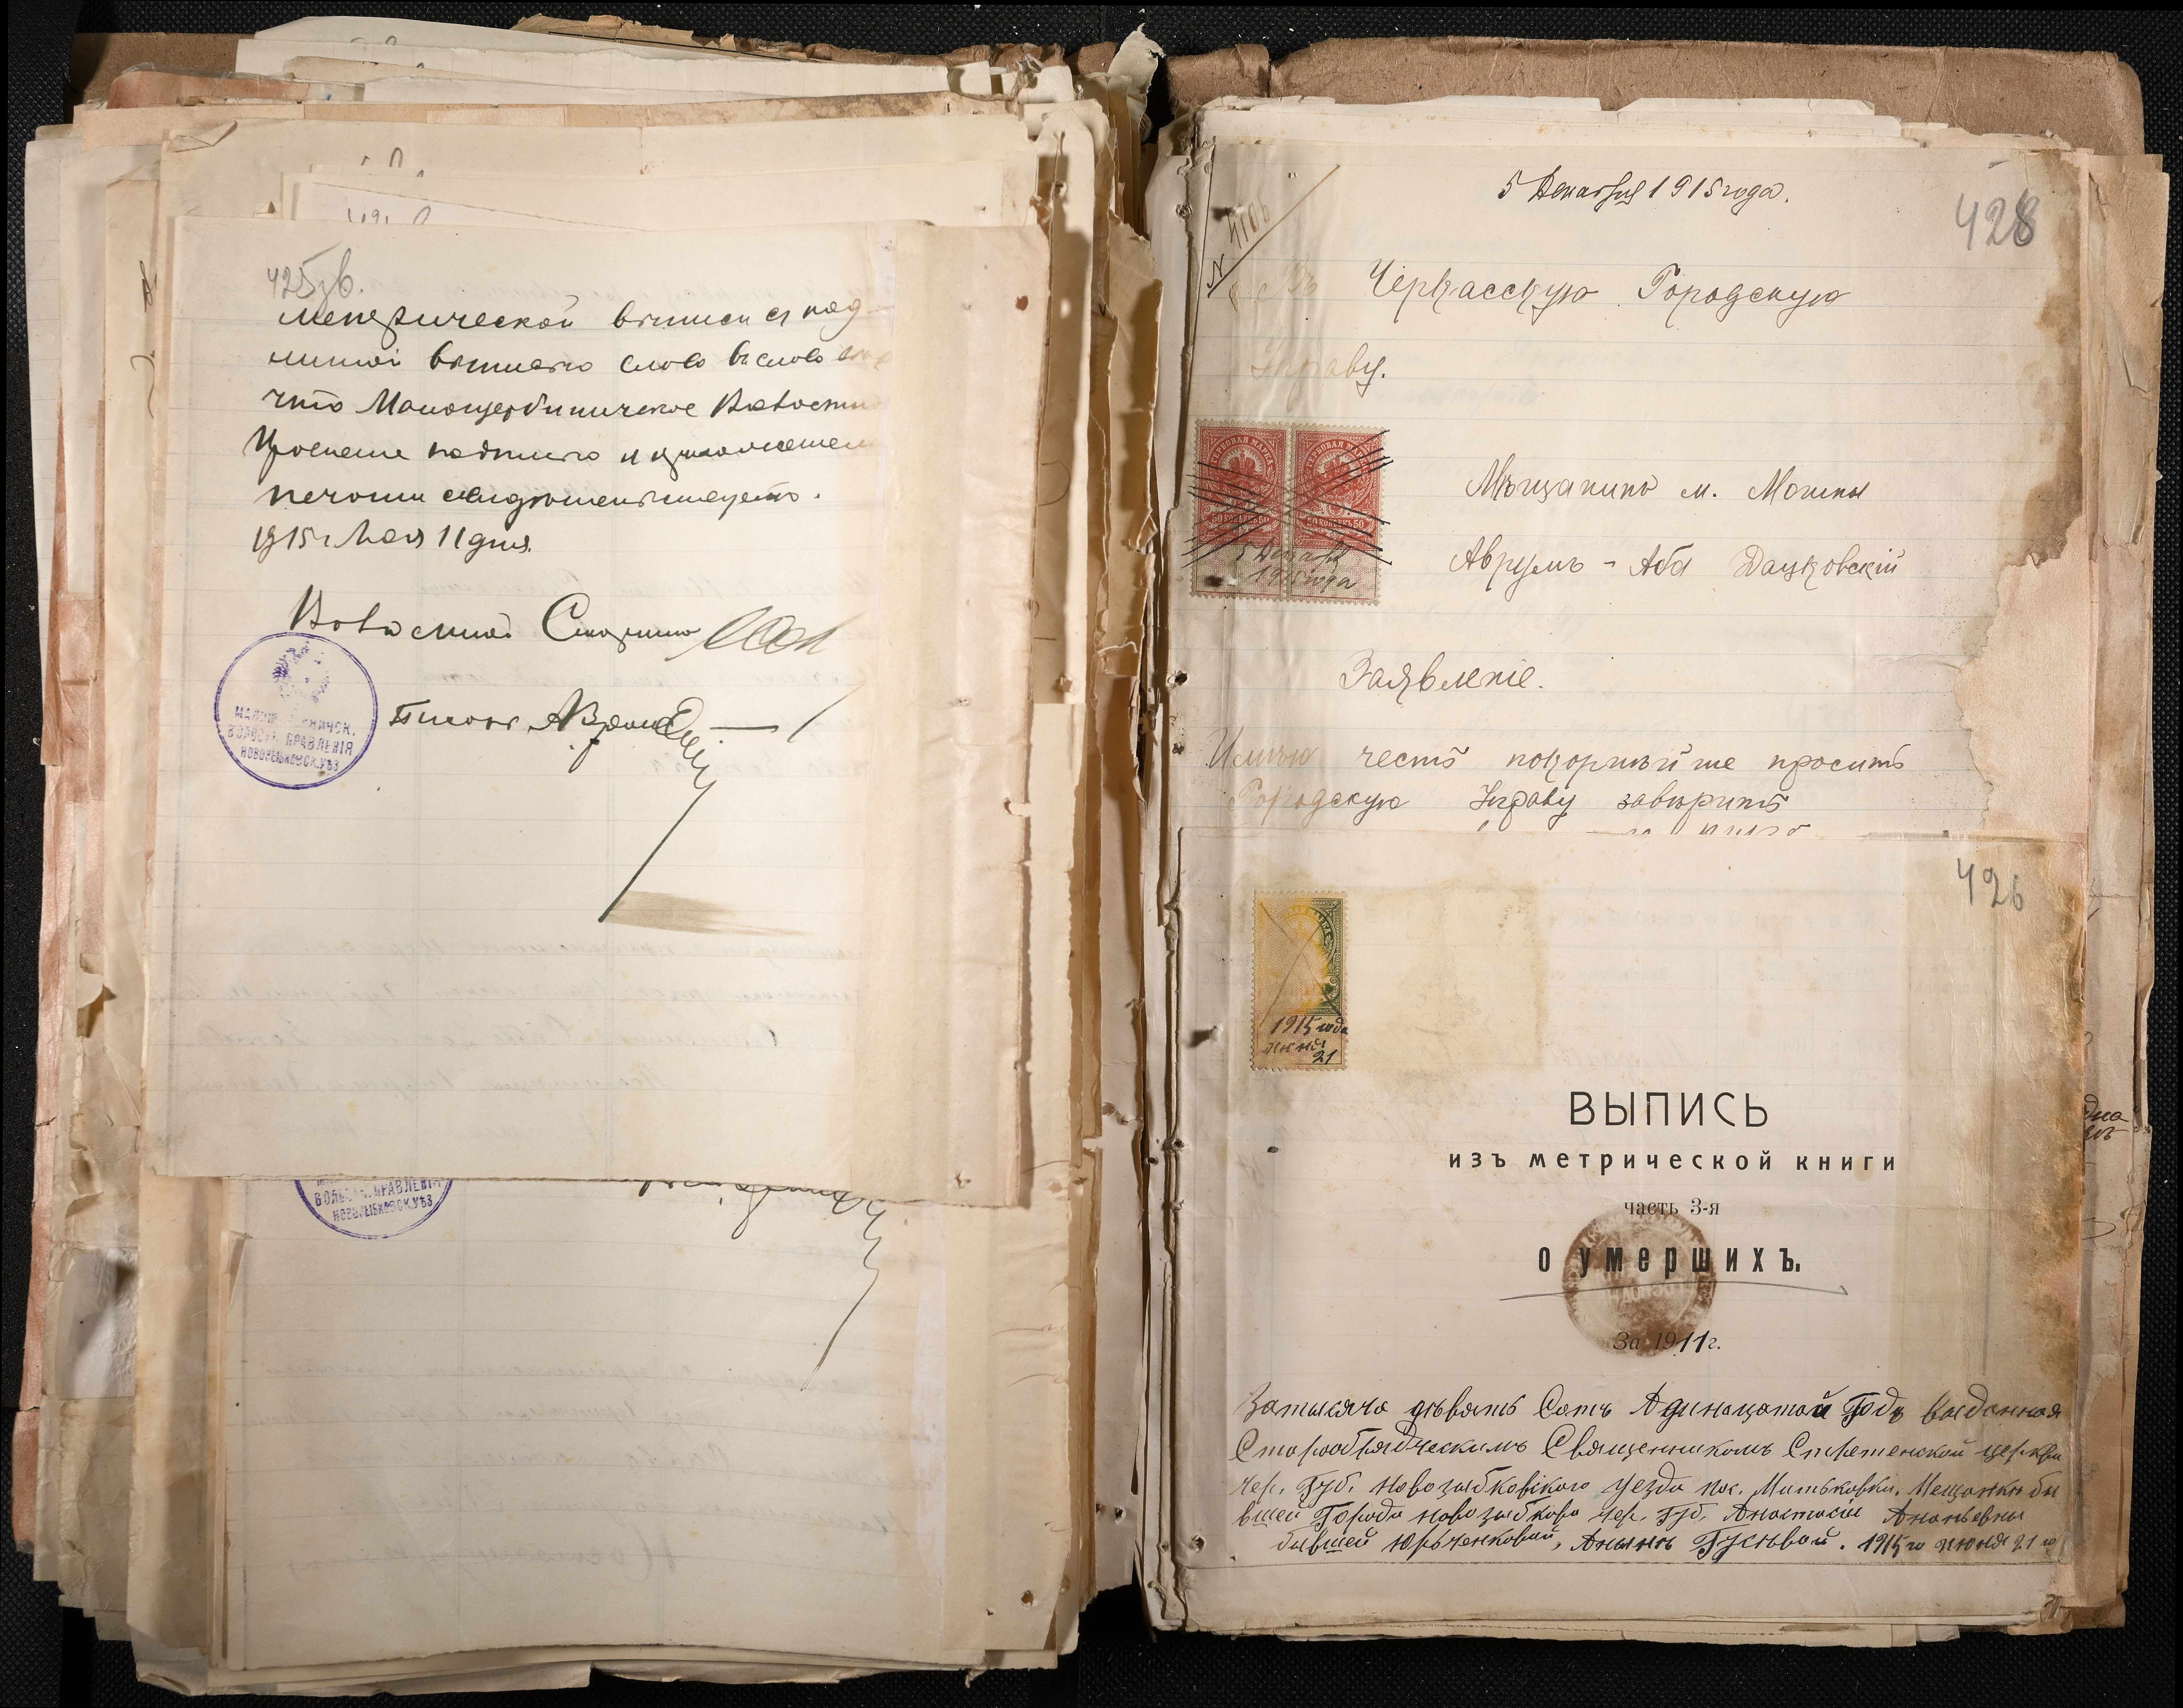 425зв.
Метрической выписи съ под-
линной выписью слово въ слово
что Малощербиничское Волостное
Правление подписью и приложением
печати свидетельствует.
1915 г. Мая 11 дня.
Волостной Старшина
МАЛОЩ НИЧСК.
ВОЛОСТН. ПРАВЛЕНІЯ
НОВОЗЫБКОВСК. УѢЗ
Писарь
ВОЛ ПРАВЛЕНІЯ
НОВОЗЫБКОВСК. УѢЗ
5 Декабря 1915 года.
428
N
Въ Черкасскую Городскую
Управу.
ГЕРБОВАЯ МАРКА
ГЕРБОВАЯ МАРКА
50 КОПѢЕКЪ 50
50 КОПѢЕКЪ 50
5 Декабря
1915 года
Мѣщанинъ м. Мошны
Аврумъ-Аба Дацковскій
Заявленіе.
Имѣю честь покорнѣйше просить
Городскую Управу завѣрить
426
1915 года
июня
21
ВЫПИСЬ
изъ метрической книги
часть 3-я
о умершихъ.
За 1911 г.
За тысяча девять Сотъ Адинацатой Годъ выданная
Старообрядческимъ Священникомъ Стретенской церкви
Чер. Губ. Новозыбковского уезда пос. Митьковки. Мещанки бы
вшей Города Новозыбкова Чер. Губ. Анастасіи Ананьевны
бывшей Юрьченковой, Анынѣ Гусевой. 1915 го июня 21 го